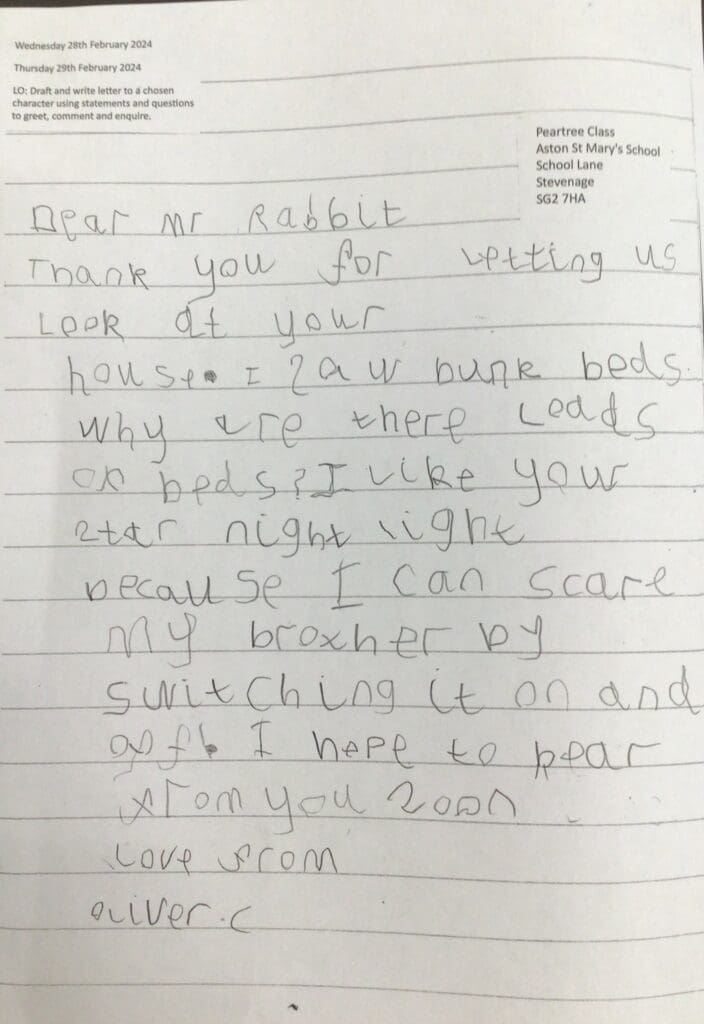 Wednesday 28th February 2024
Thursday 29th February 2024
LO: Draft and write letter to a chosen
character using statements and questions
to greet, comment and enquire.
Peartree Class
Aston St Mary's School
School Lane
Stevenage
SG2 7HA
Dear Mr Rabbit
Thank you for letting us
Look at your
house. I saw bunk beds.
Why are there Loads
of beds? I like your
star night light
because I can scare
My brother by
switching it on and
off. I hope to hear
from you soon
Love from
Oliver.C